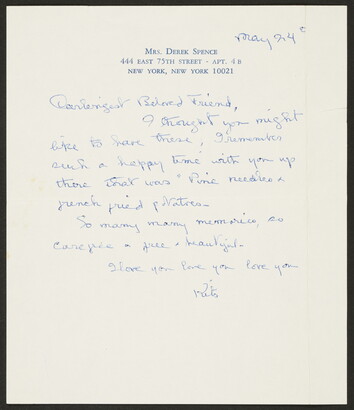 May 24
MRS. DEREK SPENCE
444 EAST 75TH STREET - APT. 4B
NEW YORK, NEW YORK 10021
Darlingest Beloved Friend,
I thought you might
like to have these, I remember
such a happy time with you up
there that was "Pine needles &
french fried potatoes.
So many many memories, so
carefree & free & beautiful.
I love you love you love you